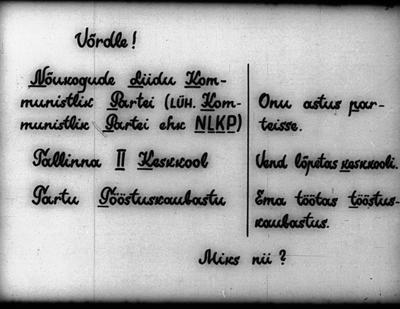 Võrdle!
Nõukogude Liidu Kom-
munistlik Partei (LÜH. Kom-
munistlik Partei ehk NLKP)
Tallinna II Keskkool
Tartu Tööstuskaubastu
Onu astus par-
teisse.
Vend lõpetas keskkooli.
Ema töötas tööstus-
kaubastus.
Miks nii?